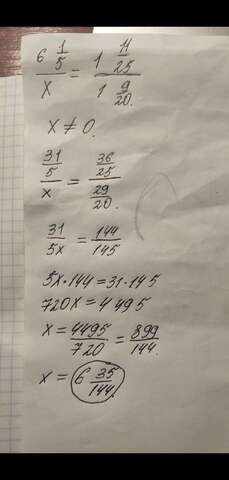 6 1/5 / x = 1 11/25 / 1 9/20.
x ≠ 0.
31/5 / x = 36/25 / 29/20.
31/5x = 144/145
5x·144=31·145
720x=4495
x=4495/720=899/144.
x = 6 35/144.